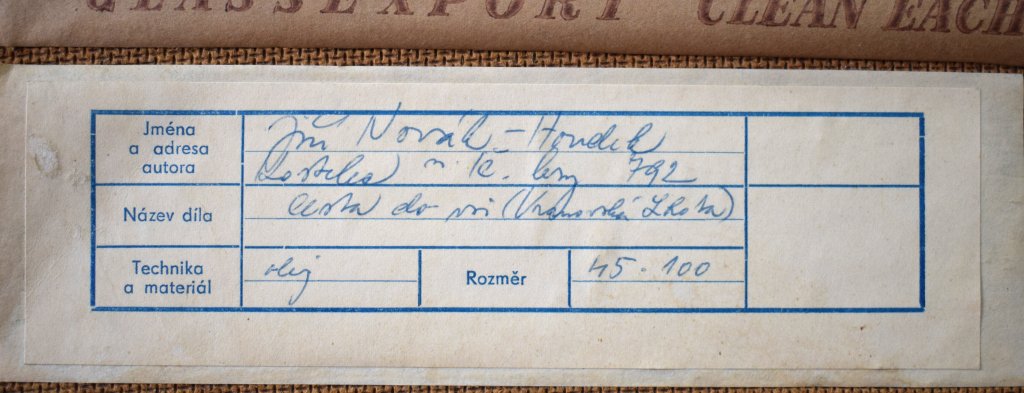 GLASSEXPORT CLEAN EACH
Jména
a adresa
autora
Jiří Novák - Houdek
Kostelec n. č. lesy 792
Název díla
Cesta do vsi (Vranovská Lhota)
Technika
a materiál
olej
Rozměr
45 · 100